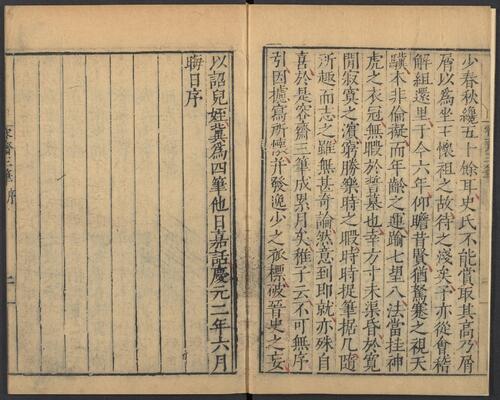 少春秋纔五十餘耳史氏不能賞取其高乃屑
屑以爲坐王懷祖之故待之淺矣予亦從會稽
解組還里于今六年仰瞻昔賢猶駑蹇之視天
驥本非倫擬而年齡之運踰七望八法當挂神
虎之衣冠無暇於誓墓也幸方寸未渠昏於寬
閒寂寞之濱窮勝樂時之暇時時捉筆据几隨
所趣而志之雖無甚奇論然意到即就亦殊自
喜於是容齋三筆成累月矣稚子云不可無序
引因攄寫所懷并發逸少之孤標破晉史之妄
以詔兒姪冀爲四筆他日嘉話慶元二年六月
晦日序
容齋三筆序